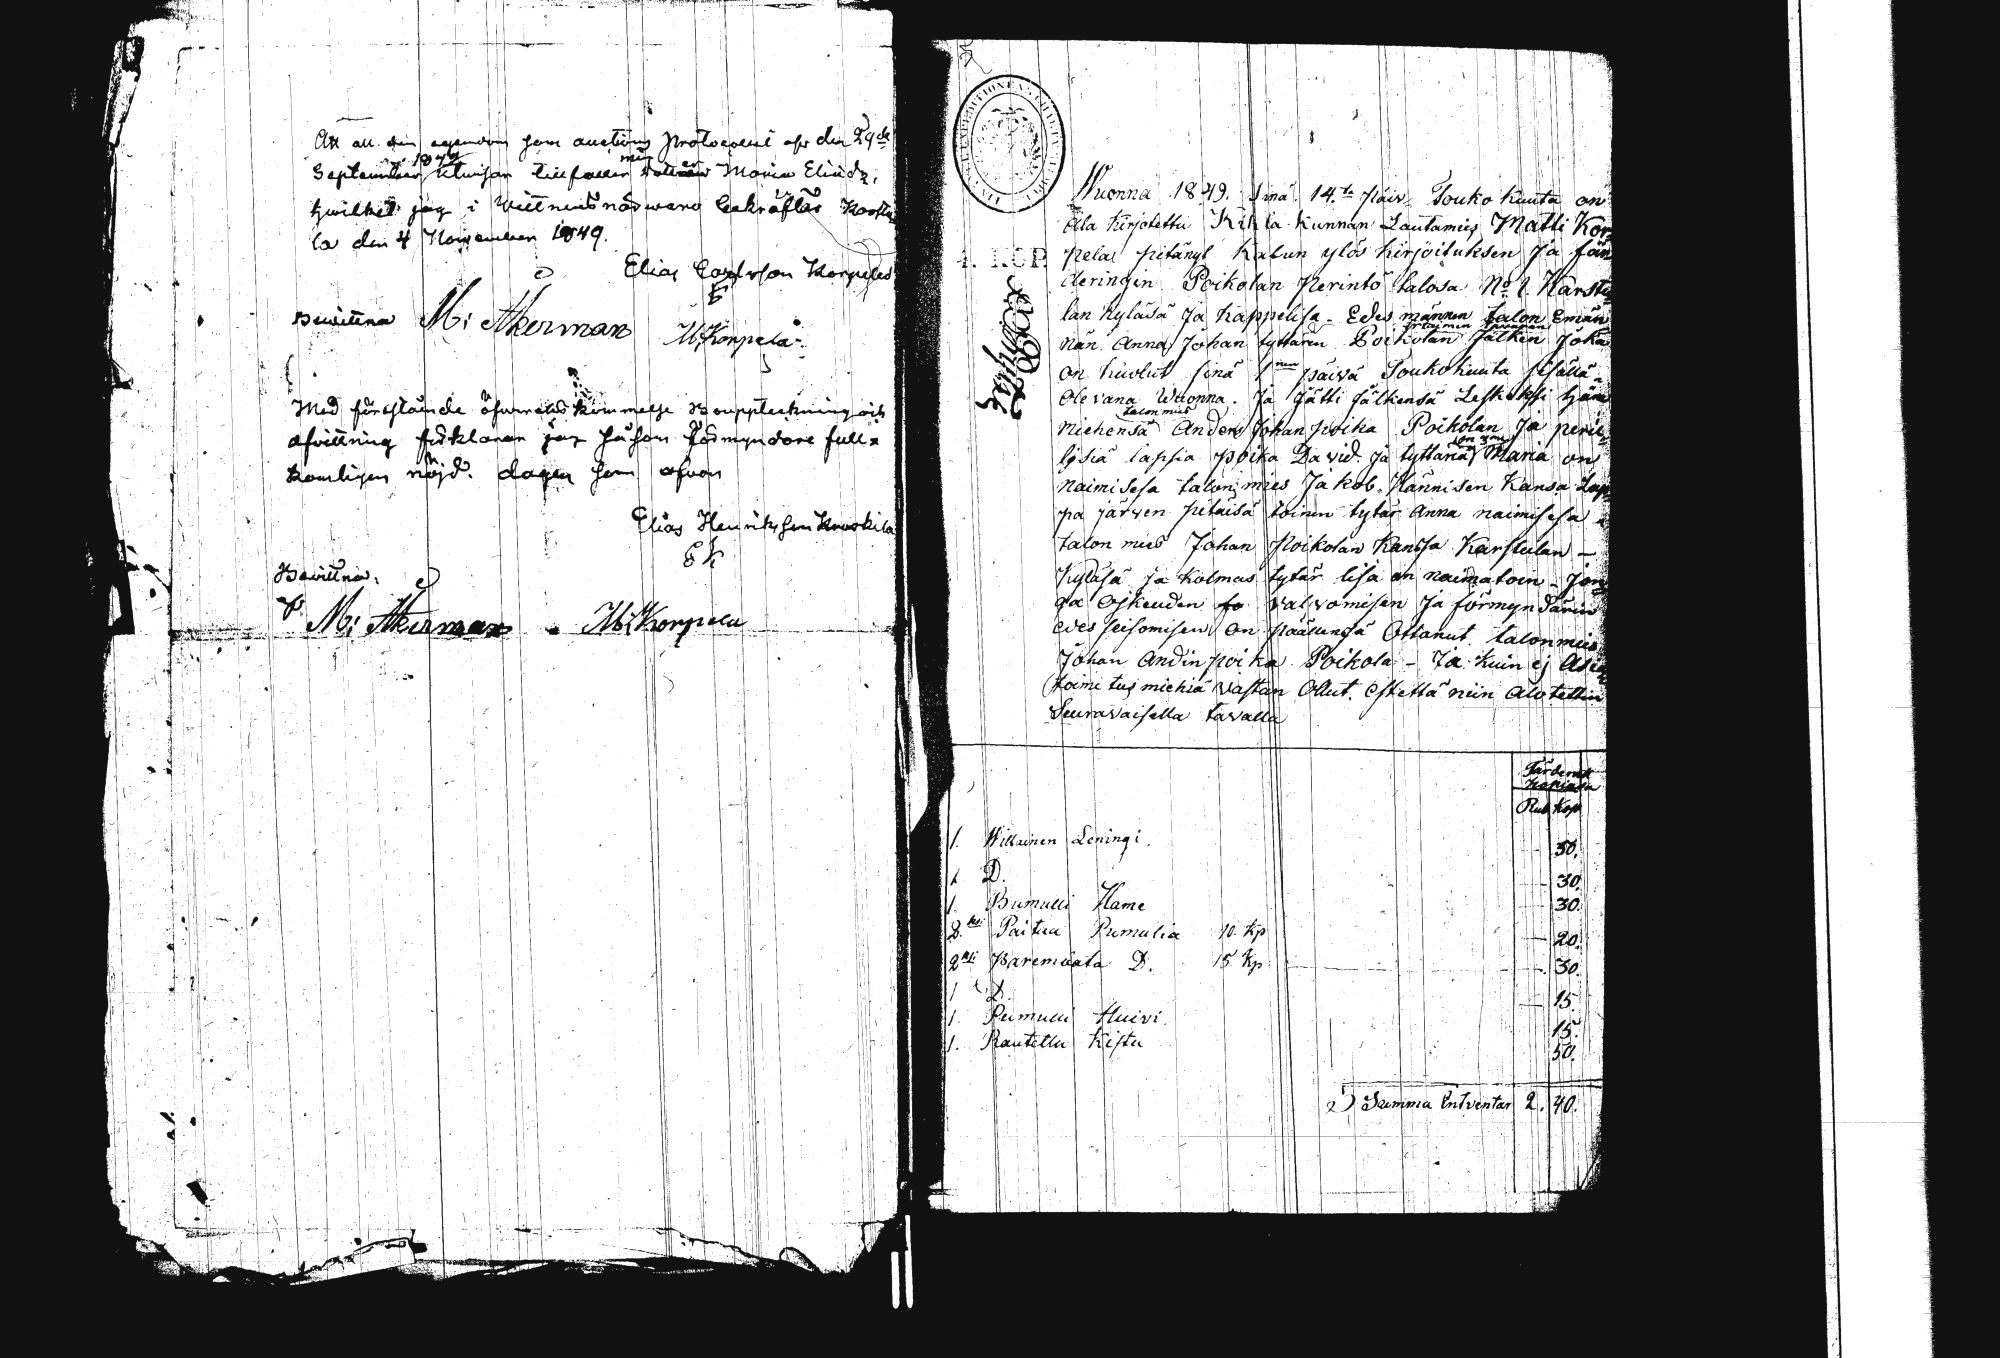 Att all den egendom som auctions Protocoll af den 29de
September 1849 utwisar tillfaller min dotter Maria Elind,
hwilket jag i Wittnens närwaro bekräftar Karstu
la den 4 November 1849.
Elias Carlsson Korpela
E
Bewittna M: Åkerman M:Korpela
Med förestående öfwerenskommelse Bouppteckning och
afvittring förklarar jag såsom Förmyndare full=
komligen nöjd. dagen som ofvan
Elias Henriksson Kruskila
E K
Bewittna,
M: Åkerman M:Korpela
4. KOP.
Wuonna 1849. Sinä 14.ta Päiv. Touko kuuta on
Ala kirjotettu Kihla Kunnan Lautamies Matti Kor
pela pitänyt Kalun ylös kirjoituksen Ja fän
deringin Poikolan Perintö talosa No 1. Karstu
lan kyläsä Ja Kappelisa. Edes männen talon Emän
nän Anna Johan tyttären Poikolan Jälken Joka
on kuolut sinä 1 päivä Toukokuuta sisällä
olevana Wuonna. Ja Jätti Jälkensä Leskeksi
miehensä talon mies Anders Johan poika Poikolan Ja peril
lisiä lapsia poika David. Ja tyttäriä Maria on
naimisesa talon mies Jakob. Hännisen Kansa Lap
pa järven pitäisä toinen tytär Anna naimisesa
talon mies Johan Poikolan Kansa Karstulan -
kyläsä ja kolmas tytär Lisa on naimatoin - Jon
ga Ojkeuden valvomisen Ja förmyndärin
edes seisomisen on päällensä Ottanut talon mies
Johan Andin poika Poikola - Ja kuin ej Asia
toimi tus miehiä vastan Ollut. Estettä niin Alotettin
Seuravaisella tavalla
Färderatt
Hopiasa
Rub Kop
1. Willainen Leningi. 50.
1 D. 30.
1. Bumulli Hame 30.
2.ksi Paitua Pumulia 10. Kp 20.
2ksi Paremata D. 15 Kp 30.
1 D. 15
1. Pumulli Huivi. 15.
1. Rautettu Kistu 50.
Summa Entventar 2. 40.